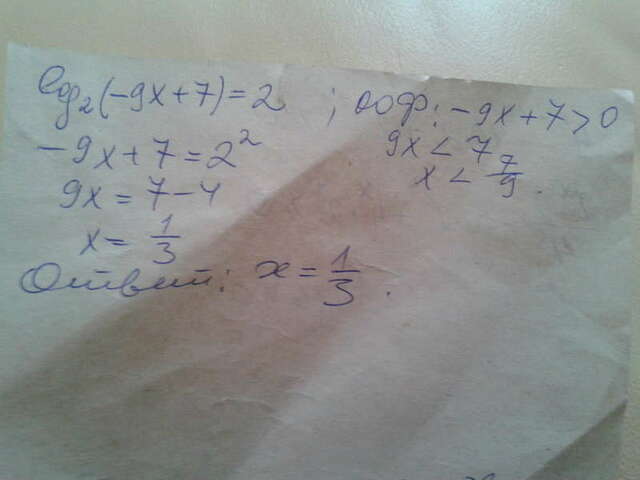 log₂(-9x+7)=2 ; ООФ: -9x+7>0
-9x+7=2² 9x<7
9x=7-4 x<7/9.
x=1/3
Ответ: x=1/3.